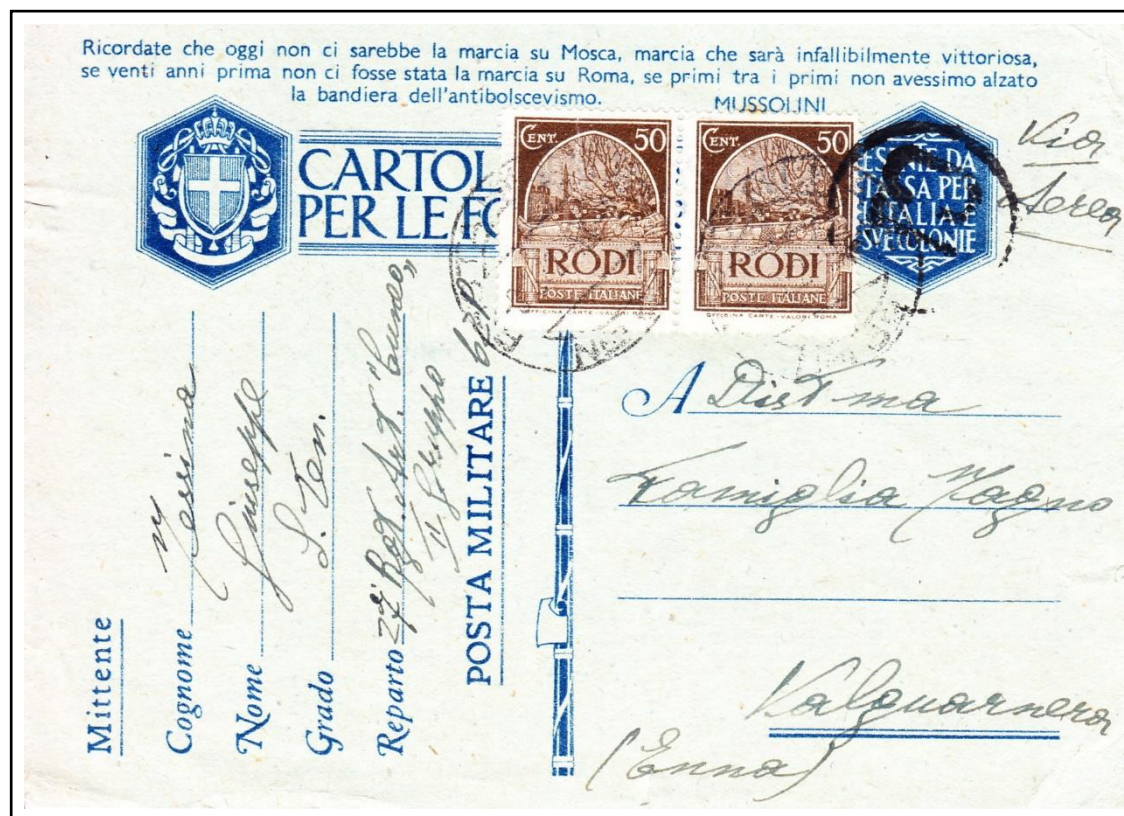 Ricordate che oggi non ci sarebbe la marcia su Mosca, marcia che sarà infallibilmente vittoriosa,
se venti anni prima non ci fosse stata la marcia su Roma, se primi tra i primi non avessimo alzato
la bandiera dell'antibolscevismo. MUSSOLINI
CARTOL
PER LE FO
CENT. 50
RODI
POSTE ITALIANE
OFFICINA CARTE-VALORI ROMA
CENT. 50
RODI
POSTE ITALIANE
OFFICINA CARTE-VALORI ROMA
ESENTE DA
TASSA PER
L'ITALIA E
SVE COLONIE
Via
Aerea
Mittente
Cognome
Nome Giuseppe
Grado S. Ten.
Reparto 27º Rgt. Art. "Cuneo"
Gruppo
POSTA MILITARE
A Dist.ma
Famiglia Magno
Valguarnera
(Enna)